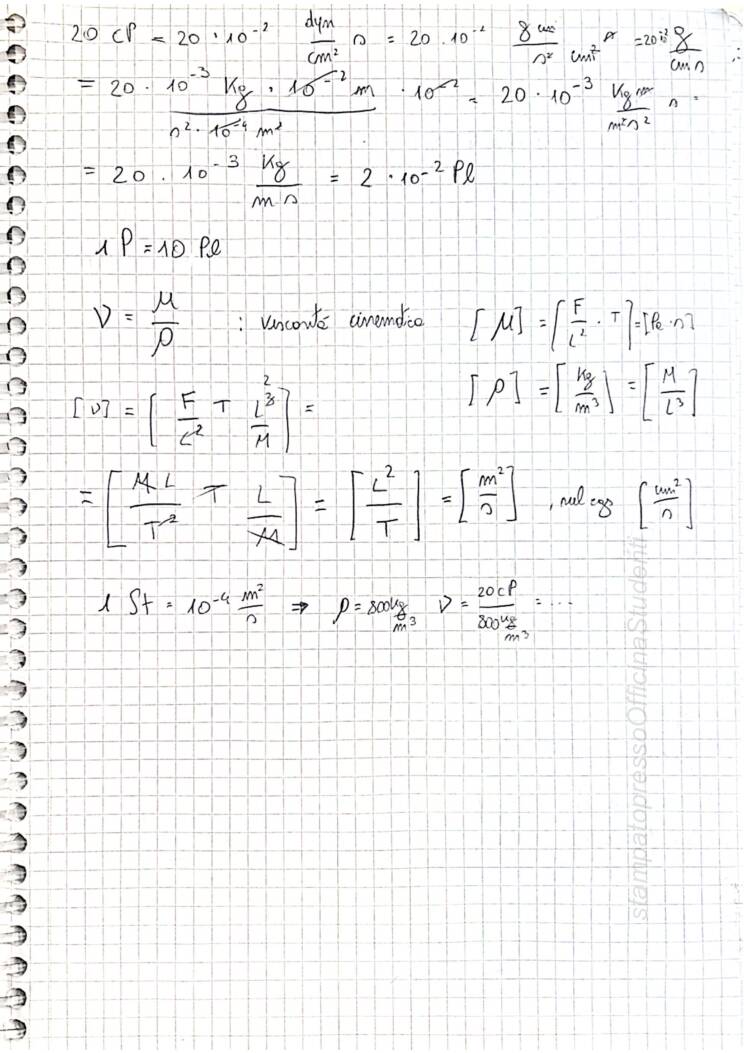 20 cP = 20 · 10⁻² dyn/cm² s = 20 · 10⁻² g cm/s² cm² s = 20 10⁻² g/cm s
= 20 · 10⁻³ Kg · 10⁻² m / s² · 10⁻⁴ m² · 10⁻² = 20 · 10⁻³ Kg m/m² s² s =
= 20 · 10⁻³ Kg/m s = 2 · 10⁻² Pl
1 P = 10 Pl
ν = μ/ρ : viscosità cinematica [μ] = [F/L² · T] = [Pa · s]
[ρ] = [Kg/m³] = [M/L³]
[ν] = [F/L² T L³/M] =
= [M L/T² T L/M] = [L²/T] = [m²/s] , nel cgs [cm²/s]
1 St = 10⁻⁴ m²/s ⇒ ρ = 800 Kg/m³ ν = 20 cP/800 Kg/m³ = ...
stampatopressoOfficinaStudenti